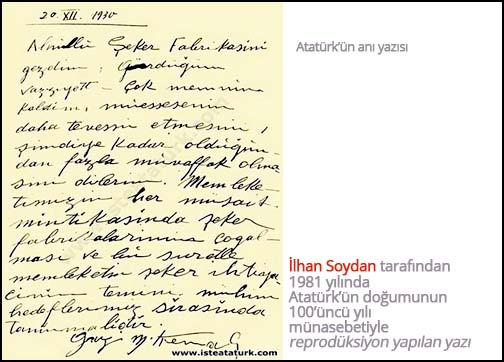 20. XII. 1930
Alpullu Şeker Fabrikasını
gezdim; Gördüğüm
vaziyett Çok memnun
kaldım, müessesenin
daha tevessü etmesini,
şimdiye kadar olduğun
dan fazla muvaffak olma
sını dilerim. Memleke
timizin her müsait
mıntıkasında şeker
fabrikalarının çoğal-
ması ve bu suretle
memleketin şeker ihtiya
cının temini mühim
hedeflerimiz sırasında
tanınmalıdır.
Gazi M. Kemal
www.isteataturk.com
Atatürk'ün anı yazısı
İlhan Soydan tarafından
1981 yılında
Atatürk'ün doğumunun
100'üncü yılı
münasebetiyle
reprodüksiyon yapılan yazı